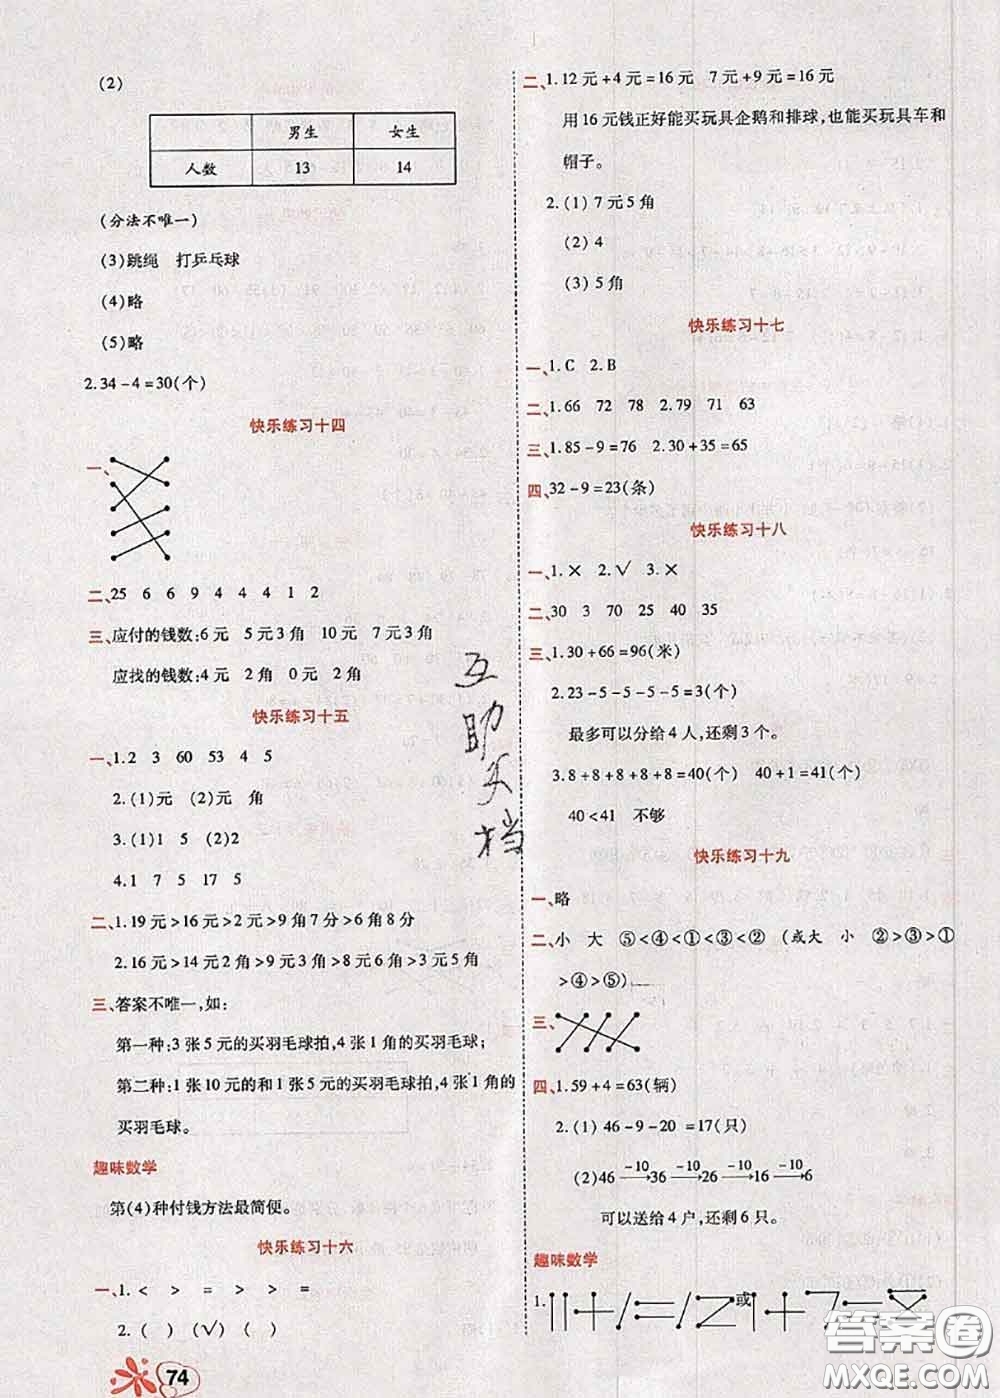 (2)
男生 女生
人数 13 14
(分法不唯一)
(3)跳绳 打乒乓球
(4)略
(5)略
2.34-4=30(个)
快乐练习十四
一、
二、25 6 6 9 4 4 4 1 2
三、应付的钱数:6元 5元3角 10元 7元3角
应找的钱数:4元 2角 0元 2角
快乐练习十五
一、1.2 3 60 53 4 5
2.(1)元 (2)元 角
3.(1)1 5 (2)2
4.1 7 5 17 5
二、1.19元>16元>2元>9角7分>6角8分
2.16元>14元2角>9元3角>8元6角>3元5角
三、答案不唯一,如:
第一种:3张5元的买羽毛球拍,4张1角的买羽毛球;
第二种:1张10元的和1张5元的买羽毛球拍,4张1角的
买羽毛球。
趣味数学
第(4)种付钱方法最简便。
快乐练习十六
一、1. < > = > > =
2. ( ) (√) ( )
74
二、1.12元+4元=16元 7元+9元=16元
用16元钱正好能买玩具企鹅和排球,也能买玩具车和
帽子。
2.(1)7元5角
(2)4
(3)5角
快乐练习十七
一、1.C 2.B
二、1.66 72 78 2.79 71 63
三、1.85-9=76 2.30+35=65
四、32-9=23(条)
快乐练习十八
一、1.× 2.√ 3.×
二、30 3 70 25 40 35
三、1.30+66=96(米)
2.23-5-5-5-5=3(个)
最多可以分给4人,还剩3个。
3.8+8+8+8+8=40(个) 40+1=41(个)
40<41 不够
快乐练习十九
一、略
二、小 大 ⑤<④<①<③<② (或大 小 ②>③>①
>④>⑤)
三、
四、1.59+4=63(辆)
2.(1)46-9-20=17(只)
(2)46 -10→ 36 -10→ 26 -10→ 16 -10→ 6
可以送给4户,还剩6只。
趣味数学
1. 11+1=12 或 1+7=8
互
助
文
档
答案圈
MXQE.COM